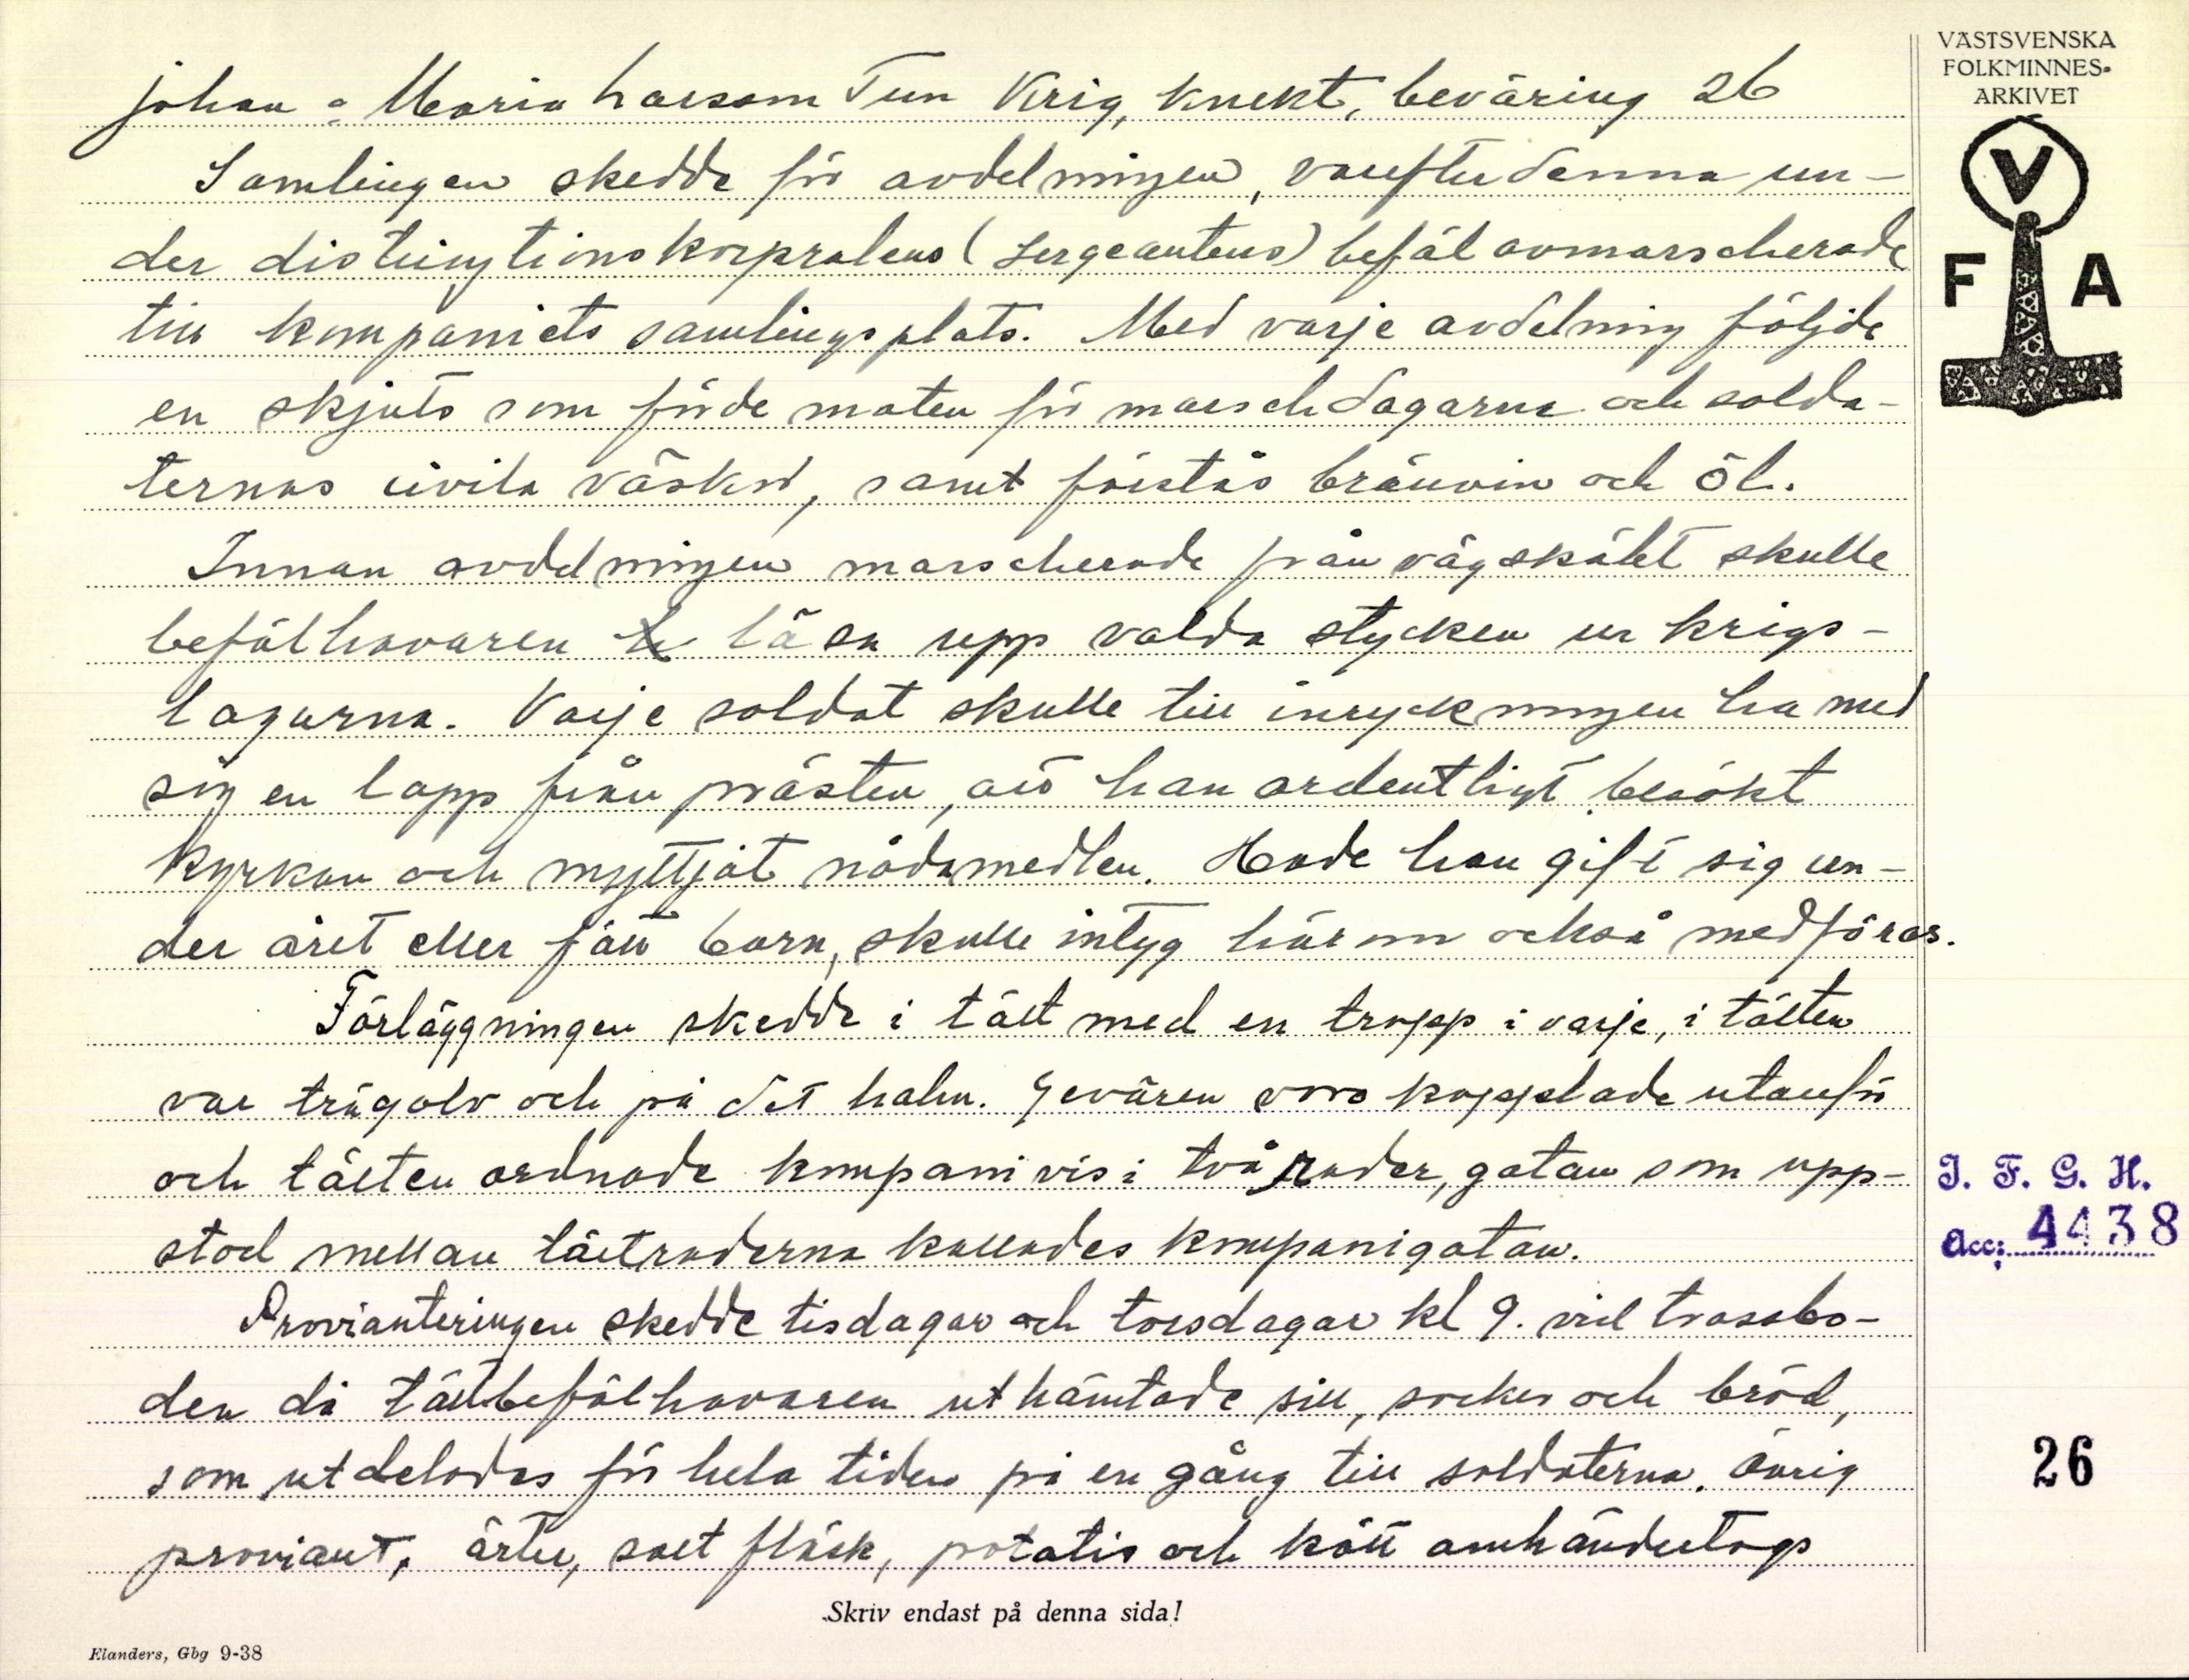 VÄSTSVENSKA
FOLKMINNES-
ARKIVET
V
F A
johan o Maria Larsson Tun Krig, knekt, beväring 26
Samlingen skedde för avdelningen, varefter denna un-
der distingtionskorpralens (Sergeantens) befäl avmarscherade
till kompaniets samlingsplats. Med varje avdelning följde
en skjuts som förde maten för marschdagarna och solda-
ternas civila väskor, samt förstås brännvin och öl.
Innan avdelningen marscherade från vägskälet skulle
befälhavaren läsa upp valda stycken ur krigs-
lagarna. Varje soldat skulle till inryckningen ha med
sig en lapp från prästen, att han ordentligt besökt
kyrkan och nyttjat nådamedlen. Hade han gift sig un-
der året eller fått barn, skulle intyg härom också medföras.
Förläggningen skedde i tält med en tropp i varje, i tälten
var trägolv och på det halm. Gevären voro kopplade utanför
och tälten ordnade kompanivis i två rader, gatan som upp-
stod mellan tältraderna kallades kompanigatan.
Provianteringen skedde tisdagar och torsdagar kl 9. vid trossbo-
den då tältbefälhavaren uthämtade sill, socker och bröd,
som utdelades för hela tiden på en gång till soldaterna. Övrig
proviant, ärter, salt fläsk, potatis och kött omhändertogs
I. F. G. H.
Acc: 4438
26
Skriv endast på denna sida!
Elanders, Gbg 9-38